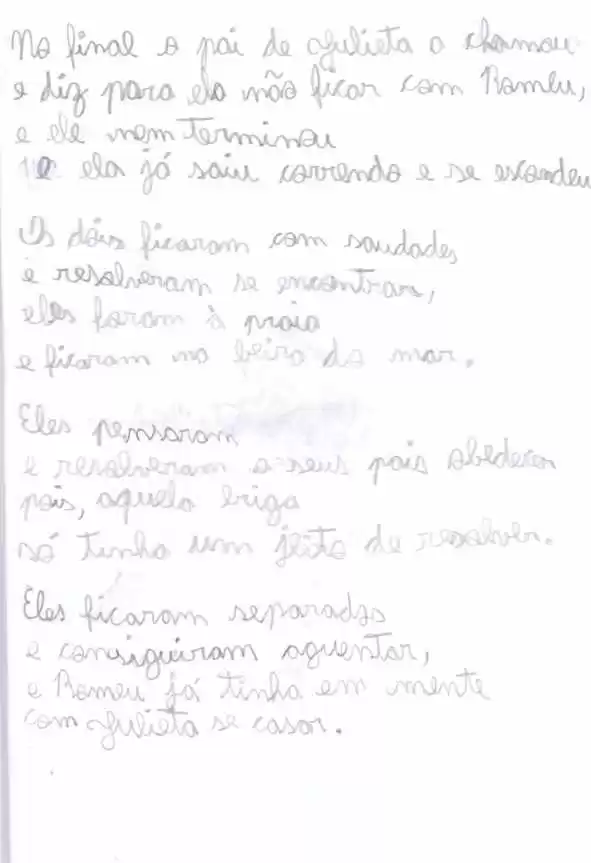 No final o pai de Julieta a chamou
e diz para ela não ficar com Romeu,
e ele nem terminou
e ela já saiu correndo e se escondeu
Os dois ficaram com saudades
e resolveram se encontrar,
eles foram à praia
e ficaram na beira do mar.
Eles pensaram
e resolveram a seus pais obedecer
pois, aquela briga
só tinha um jeito de resolver.
Eles ficaram separados
e consiguiram aguentar,
e Romeu já tinha em mente
com Julieta se casar.